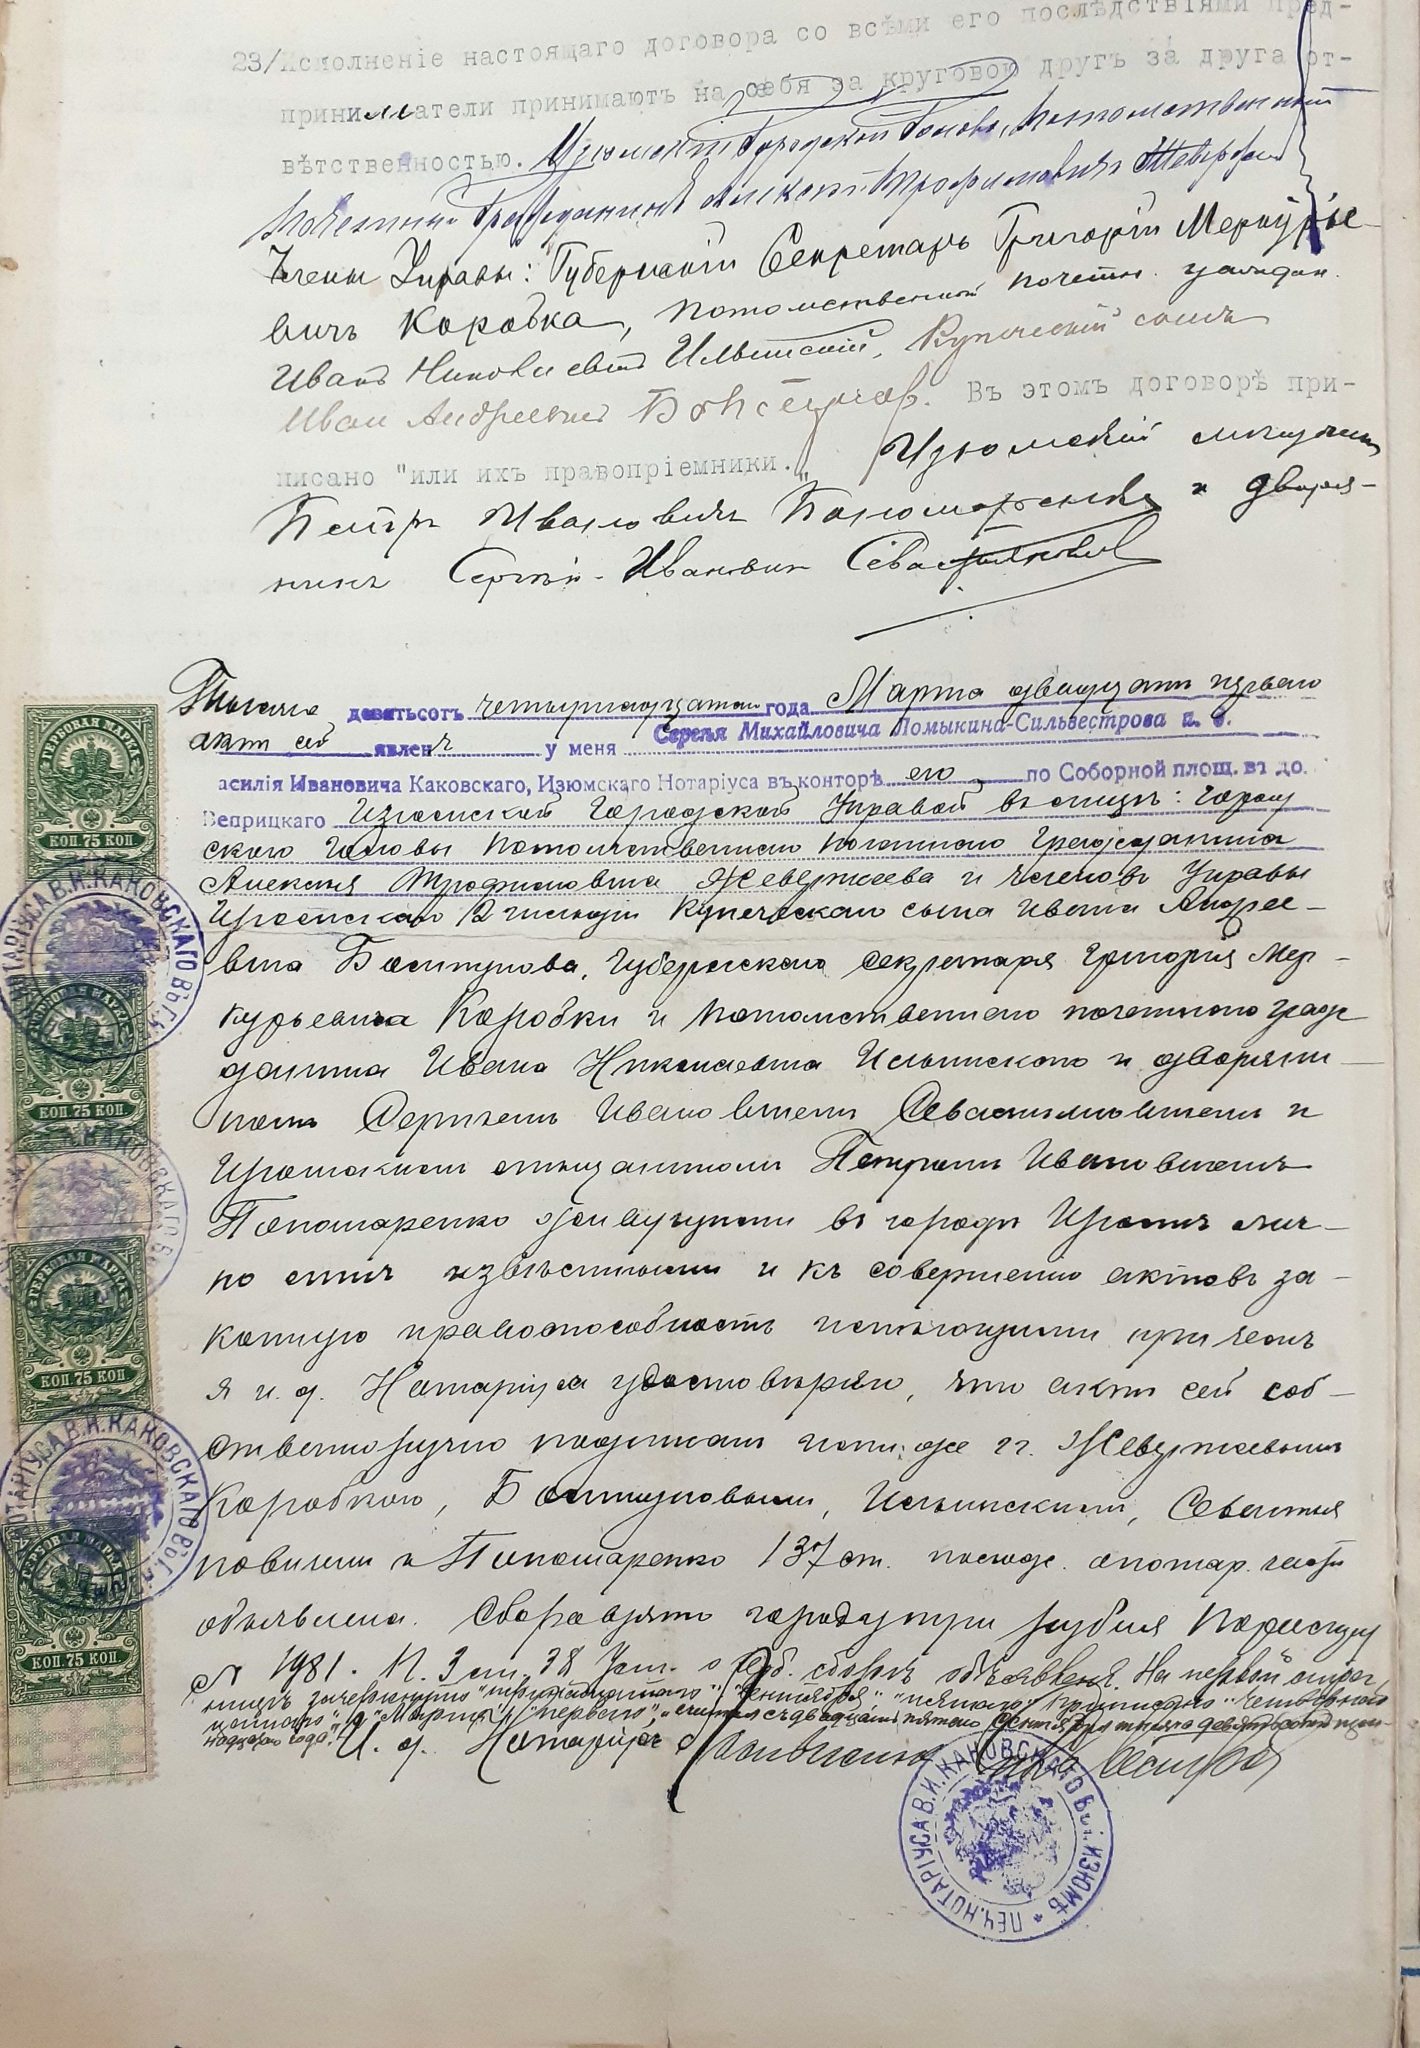 23/Исполненіе настоящаго договора со всѣми его послѣдствіями пред-
приниматели принимаютъ на себя за круговой другъ за друга от-
вѣтственностью. Изюмскій Городской Голова, Потомственный
Почетный Гражданинъ Алексѣй Трофимовичъ Жевержеевъ
Члены Управы: Губернскій Секретарь Григорій Меркурье-
вичъ Коробка, потомственный почетн. граждан.
Иванъ Николаевичъ Ильинскій, Купеческій сынъ
Иван Андреевич Бостунов. Въ этомъ договорѣ при-
писано "или ихъ правопріемники." Изюмскій мѣщанин
Петръ Ивановичъ Пономаренко и дворя-
нинъ Сергѣй Ивановичъ Севастьяновичъ
Тысяча девятьсотъ четырнадцатаго года Марта двадцать перваго
актъ сей явленъ у меня Сергѣя Михайловича Ломыкина-Сильвестрова и. о.
асилія Ивановича Каковскаго, Изюмскаго Нотаріуса въ конторѣ его по Соборной площ. въ до.
Веприцкаго Изюмской Городской Управой въ лицѣ: город
ского Головы потомственнаго почетнаго гражданина
Алексѣя Трофимовича Жевержеева и членовъ Управы
Изюмскаго 2 гильдіи Купеческаго сына Ивана Андрее-
вича Бостунова, губернскаго секретаря Григорія Мер-
курьевича Коробки и потомственнаго почетнаго граж
данина Ивана Николаевича Ильинскаго и дворяни-
номъ Сергѣемъ Ивановичемъ Севастьяновичемъ и
Изюмскимъ мѣщаниномъ Петромъ Ивановичемъ
Пономаренко живущими въ городѣ Изюмѣ лич-
но мнѣ извѣстными и къ совершенію актовъ за-
конную правоспособность имѣющими при чемъ
я и. д. Нотаріуса удостовѣряю, что актъ сей соб-
ственноручно подписанъ гг. Жевержеевымъ
Коробкою, Бостуновымъ, Ильинскимъ, Севастья
новичемъ и Пономаренко 137 ст. полож. о нотар. части
объявлена. Сбора взято въ городъ три рубля По реестру
№ 1981. П. 3 ст. 38 Уст. о герб. сборѣ объявленъ. На первой стран
ицѣ зачеркнуто "тринадцатаго" "сентября", приписано "четырнад
цатаго", а "Марта" "перваго", "считая съ двадцать пятаго сентября тысяча девятьсотъ три-
надцатаго года". И. д. Нотаріуса
КОП. 75 КОП
ГЕРБОВАЯ МАРКА
КОП. 75 КОП
ГЕРБОВАЯ МАРКА
КОП. 75 КОП
ГЕРБОВАЯ МАРКА
КОП. 75 КОП
ПЕЧ. НОТАРІУСА В. И. КАКОВСКАГО ВЪ г. ИЗЮМѢ